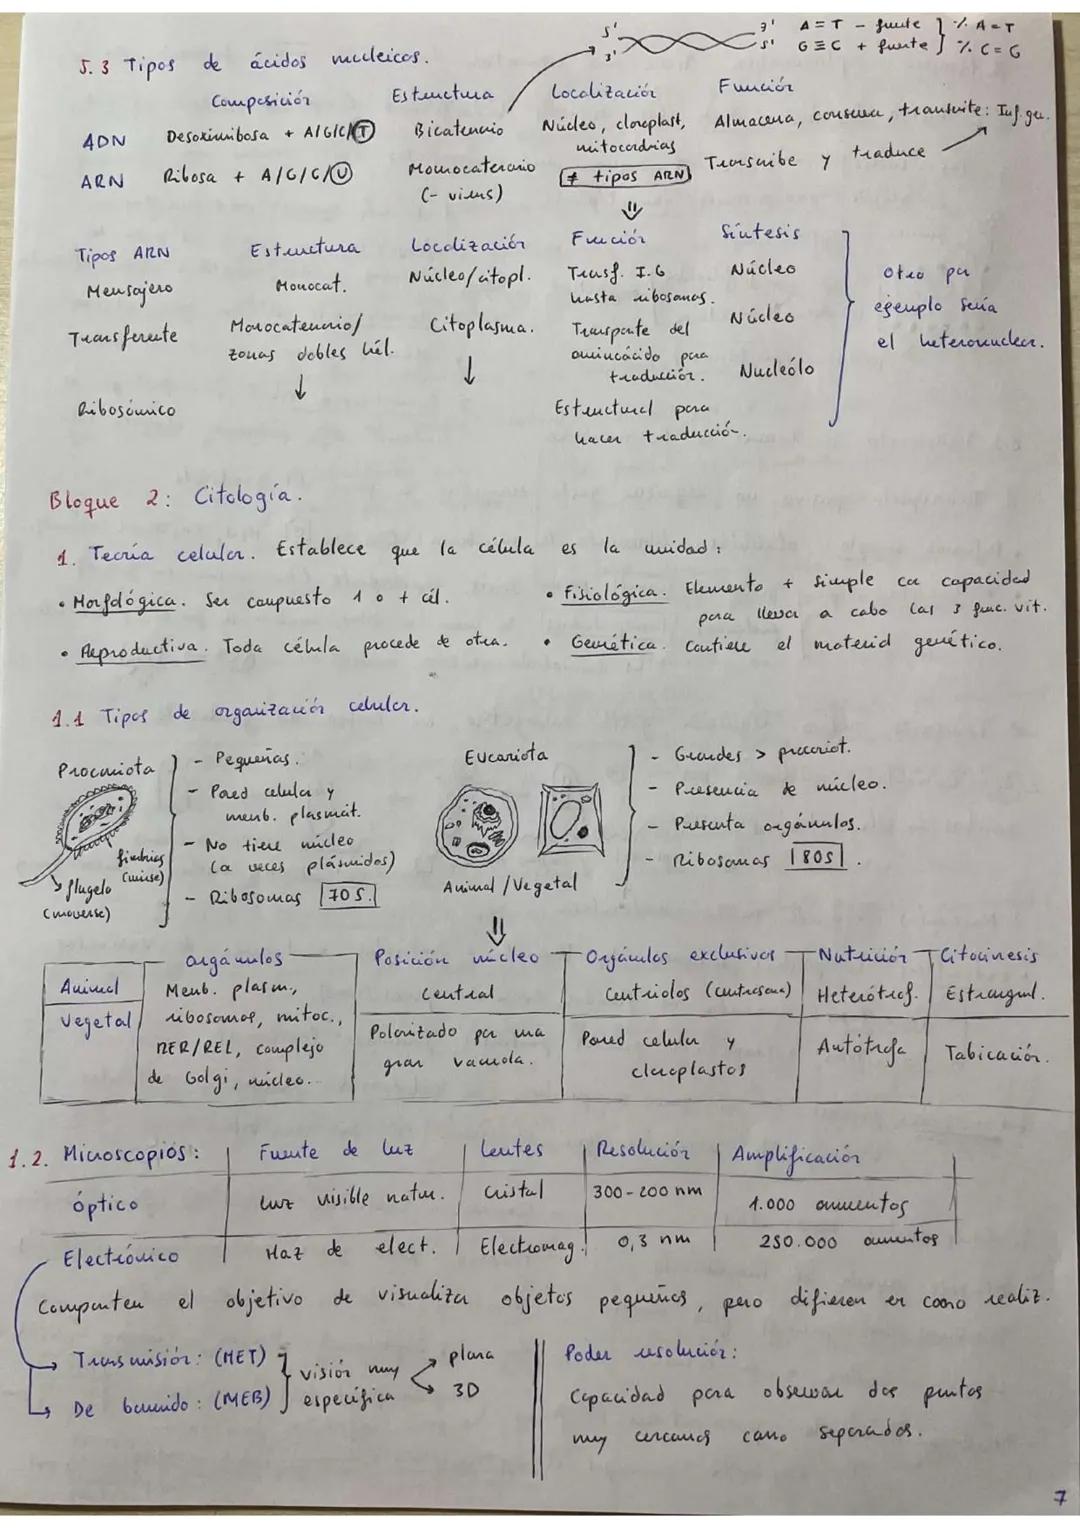 5' 3' A=T - fuerte } % A=T
3' 5' G≡C + fuerte } % C=G
5.3 Tipos de ácidos nucleicos.
Composición Estructura Localización Función
ADN Desoxirribosa + A/G/C/T Bicatenario Núcleo, cloroplast, mitocondrias Almacena, conserva, transmite: Inf. gen.
ARN Ribosa + A/G/C/U Monocatenario (- virus) ≠ tipos ARN Transcribe y traduce
⇓
Tipos ARN Estructura Localización Función Síntesis
Mensajero Monocat. Núcleo/citopl. Transf. I.G hasta ribosomas. Núcleo
Transferente Monocatenario/ zonas dobles hél. Citoplasma. Transporte del aminoácido para traducción. Núcleo
Ribosómico ↓ ↓ Estructural para hacer traducción. Nucleólo
Otro por ejemplo sería el heteronuclear.
Bloque 2: Citología.
1. Teoría celular. Establece que la célula es la unidad:
• Morfológica. Ser compuesto 1 o + cél.
• Fisiológica. Elemento + simple con capacidad
para llevar a cabo las 3 func. vit.
• Reproductiva. Toda célula procede de otra.
• Genética. Contiene el material genético.
1.1 Tipos de organización celular.
Procariota
fimbrias (unirse)
flagelo (moverse)
- Pequeñas.
- Pared celular y
memb. plasmát.
- No tiene núcleo
(a veces plásmidos)
- Ribosomas 70S.
Eucariota
Animal / Vegetal
- Grandes > procariot.
- Presencia de núcleo.
- Presenta orgánulos.
- Ribosomas 80S.
⇓
orgánulos Posición núcleo Orgánulos exclusivos Nutrición Citocinesis
Animal Central Centriolos (centrosoma) Heterótrof. Estrangul.
Vegetal Polarizado por una gran vacuola. Pared celular y cloroplastos Autótrofa Tabicación.
Memb. plasm.,
ribosomas, mitoc.,
RER/REL, complejo
de Golgi, núcleo...
1.2. Microscopios: Fuente de luz Lentes Resolución Amplificación
óptico Luz visible natur. Cristal 300-200 nm 1.000 aumentos
Electrónico Haz de elect. Electromag. 0,3 nm 250.000 aumentos
Comparten el objetivo de visualizar objetos pequeños, pero difieren en como realiz.
→ Transmisión: (MET)
→ De barrido: (MEB)
visión muy específica
→ plana
→ 3D
Poder resolución:
Capacidad para observar dos puntos
muy cercanos como separados.
7